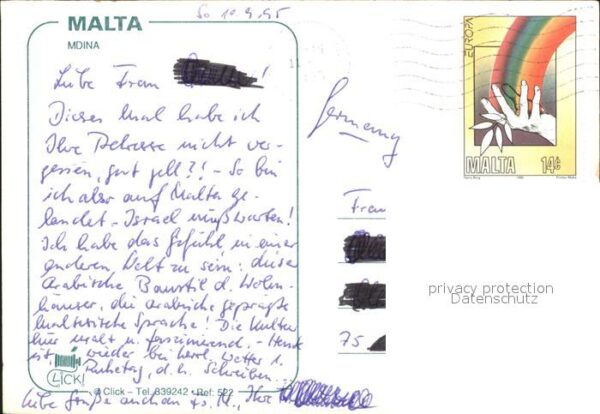 So 10.9.95
MALTA
MDINA
Liebe Frau !
Dieses Mal habe ich
Ihre Adresse nicht ver-
gessen, gut gell?! - So bin
ich also auf Malta ge-
landet - Israel muß warten!
Ich habe das Gefühl in einer
anderen Welt zu sein: dieser
arabische Baustil d. Wohn-
häuser, die arabische geprägte
maltesische Sprache! Die Kultur
hier uralt u. faszinierend. - Heute
ist wieder bei herrl. Wetter 1.
Ruhetag, d.h. Schreiben...
CLICK!
© Click - Tel. 839242 - Ref: 522
Liebe Grüße auch an Ihre
Germany
Frau
75
EUROPA
MALTA 14c
privacy protection
Datenschutz